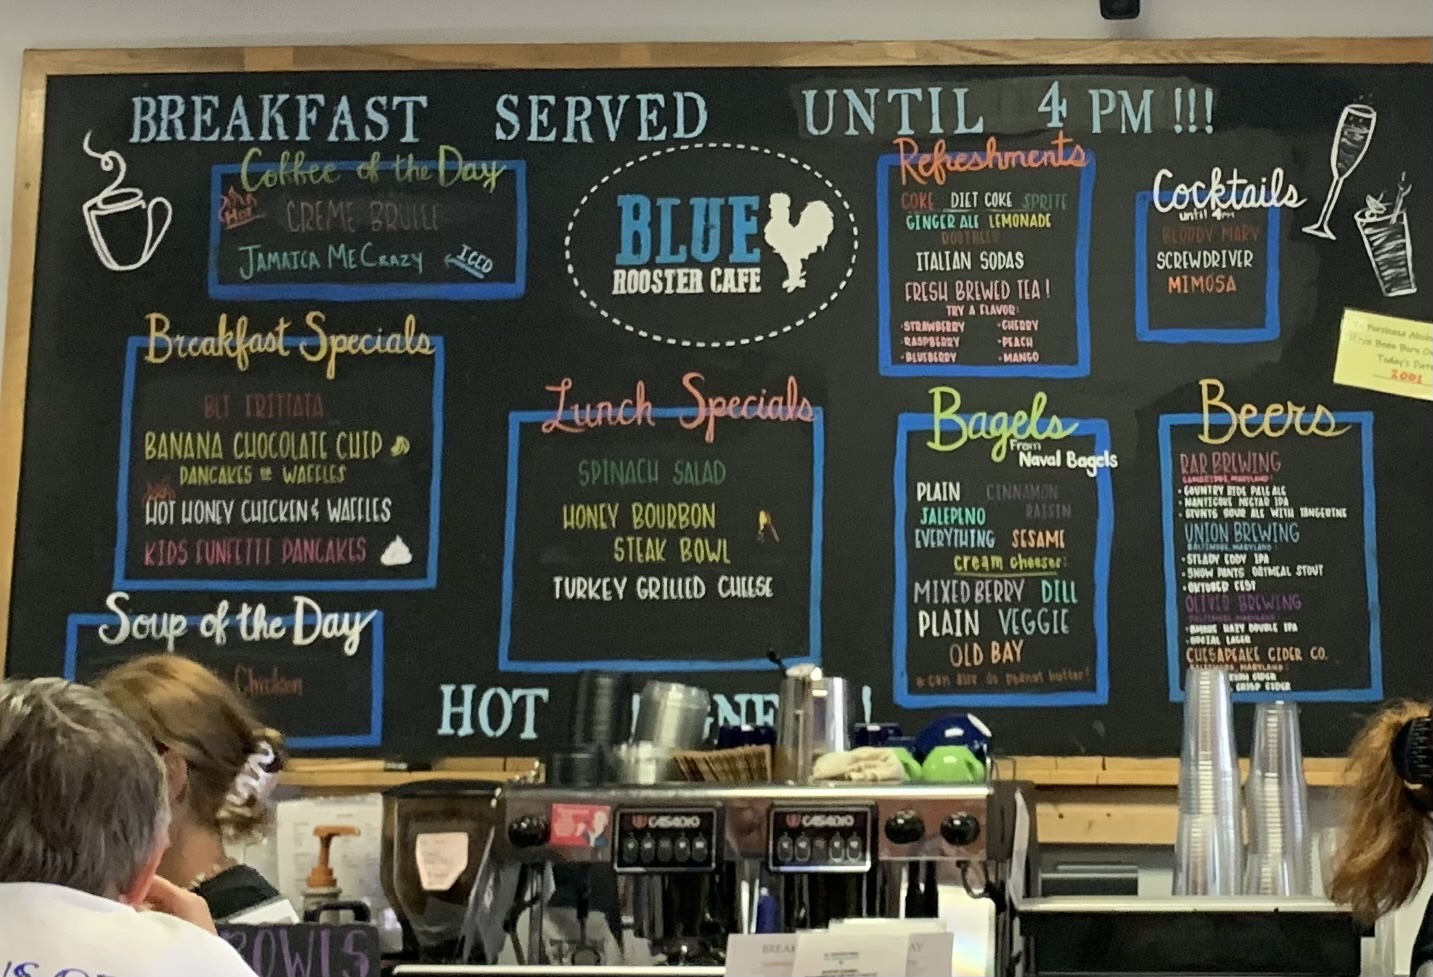 BREAKFAST SERVED UNTIL 4 PM !!!
Coffee of the Day
HOT
CREME BRULEE
JAMAICA ME CRAZY
ICED
BLUE
ROOSTER CAFE
Refreshments
COKE DIET COKE SPRITE
GINGER ALE LEMONADE
ROOTBEER
ITALIAN SODAS
FRESH BREWED TEA!
TRY A FLAVOR:
·STRAWBERRY ·CHERRY
·RASPBERRY ·PEACH
·BLUEBERRY ·MANGO
Cocktails
until 4pm
BLOODY MARY
SCREWDRIVER
MIMOSA
To Purchase
Have Been Born
Today's Date
2001
Breakfast Specials
BLT FRITTATA
BANANA CHOCOLATE CHIP
PANCAKES OR WAFFLES
HOT HONEY CHICKEN & WAFFLES
KIDS FUNFETTI PANCAKES
Lunch Specials
SPINACH SALAD
HONEY BOURBON
STEAK BOWL
TURKEY GRILLED CHEESE
Bagels
From
Naval Bagels
PLAIN CINNAMON
RAISIN
JALEPENO
EVERYTHING SESAME
cream cheeses:
MIXED BERRY DILL
PLAIN VEGGIE
OLD BAY
*can also do peanut butter!
Beers
RAR BREWING
CAMBRIDGE, MARYLAND:
·COUNTRY RIDE PALE ALE
·NANTICOKE NECTAR IPA
·STUNTS SOUR ALE WITH TANGERINE
UNION BREWING
BALTIMORE, MARYLAND:
·STEADY EDDY IPA
·SNOW PANTS OATMEAL STOUT
·OKTOBER FEST
OLIVER BREWING
BALTIMORE, MARYLAND:
HAZY DOUBLE IPA
LAGER
CHESAPEAKE CIDER CO.
BALTIMORE, MARYLAND:
CIDER
CRISP CIDER
Soup of the Day
Chicken
HOT
!
CASADIO
CASADIO
BOWLS